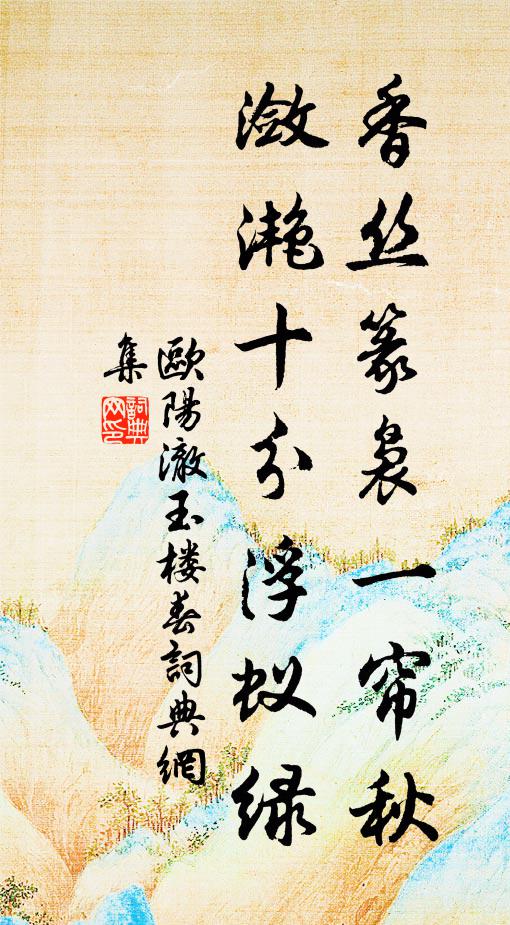 香丝篆袅一帘秋
潋滟十分浮蚁绿
歐陽澈玉楼春詞典網
集
詞典
网印